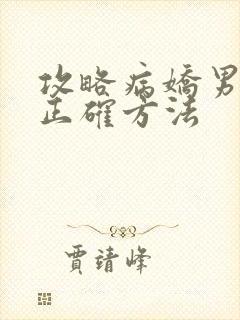 攻略病嬌男
正確方法
賈靖峰